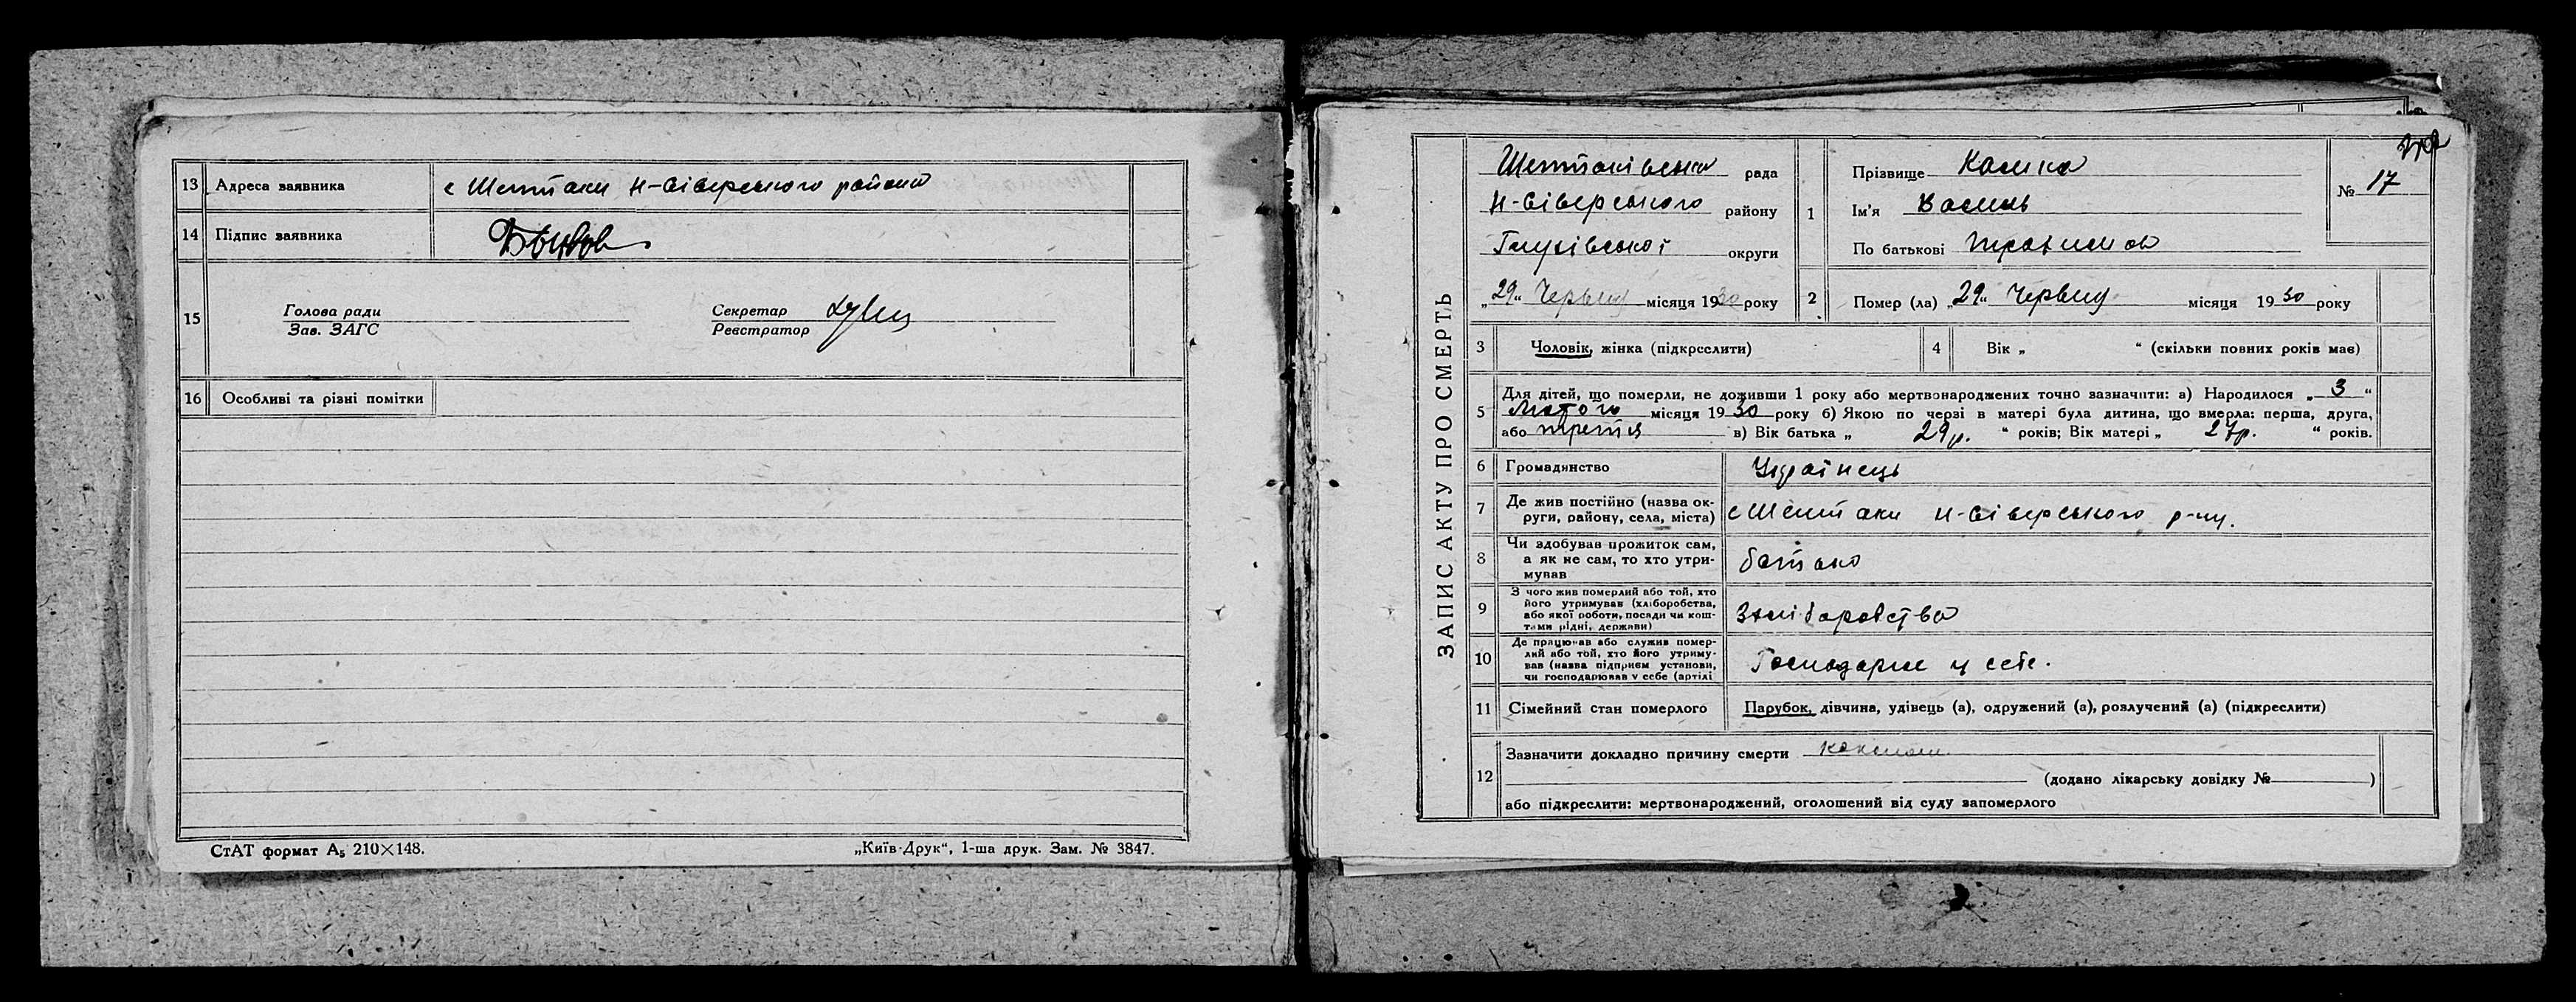 13 Адреса заявника с Шептаки Н-Сіверського району
14 Підпис заявника
15 Голова ради Секретар
Зав. ЗАГС Реєстратор
16 Особливі та різні помітки
СтАТ формат А₅ 210×148. „Київ-Друк“, 1-ша друк. Зам. № 3847.
ЗАПИС АКТУ ПРО СМЕРТЬ
Шептаківська рада
Н-Сіверського району
Глухівської округи
„29“ Червня місяця 1930 року
1 Прізвище
Ім'я Василь
По батькові
№ 17
2 Помер (ла) „29“ Червня місяця 1930 року
3 Чоловік, жінка (підкреслити)
4 Вік „ “ (скільки повних років мав)
5 Для дітей, що померли, не доживши 1 року або мертвонароджених точно зазначити: а) Народилося „3“
Лютого місяця 1930 року б) Якою по черзі в матері була дитина, що вмерла: перша, друга,
або третя в) Вік батька „ 29р. “ років; Вік матері „ 27р. “ років.
6 Громадянство Українець
7 Де жив постійно (назва ок-
руги, району, села, міста) с Шептаки Н-Сіверського р-ну.
8 Чи здобував прожиток сам,
а як не сам, то хто утри-
мував батько
9 З чого жив померлий або той, хто
його утримував (хліборобства,
або якої роботи, посади чи кош-
тами рідні, держави)
10 Де працював або служив помер-
лий або той, хто його утриму-
вав (назва підприєм установи,
чи господарював у себе (артілі
Господарив у себе.
11 Сімейний стан померлого Парубок, дівчина, удівець (а), одружений (а), розлучений (а) (підкреслити)
12 Зазначити докладно причину смерти
(додано лікарську довідку № )
або підкреслити: мертвонароджений, оголошений від суду запомерлого